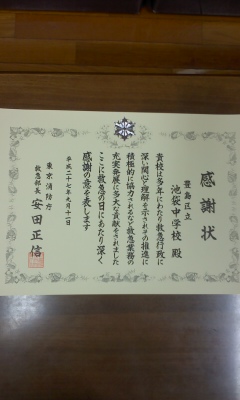 感謝状
豊島区立
池袋中学校 殿
貴校は多年にわたり救急行政に
深い関心と理解を示されその推進に
積極的に協力されるなど救急業務の
充実発展に多大な貢献をされました
ここに救急の日にあたり深く
感謝の意を表します
平成二十七年九月十一日
東京消防庁
救急部長 安田正信